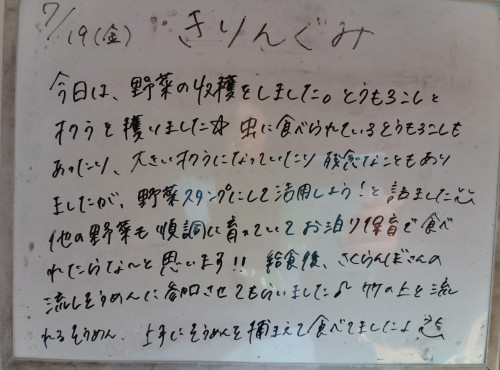 7/19(金) きりんぐみ
今日は、野菜の収穫をしました。とうもろこしと
オクラを獲りました 虫に食べられているとうもろこしも
あったり、大きいオクラになっていたり残念なこともあり
ましたが、野菜スタンプにして活用しよう!と話ました
他の野菜も順調に育っていてお泊り保育で食べ
れたらな〜と思います!! 給食後、さくらんぼさんの
流しそうめんに参加させてもらいました♪ 竹の上を流
れるそうめん、上手にそうめんを捕まえて食べてましたよ